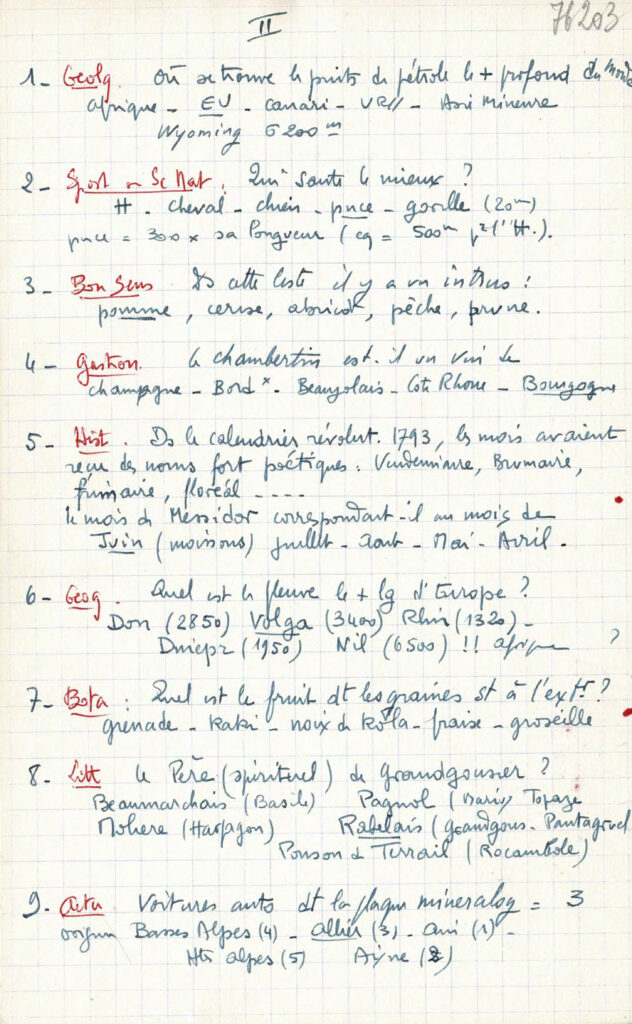 76203
II
1 - Geolg. Où se trouve le puits de pétrole le + profond du Monde
Afrique - EU - Canari - URSS - Asie Mineure
Wyoming 6200 m
2 - Sport ou Sc Nat : Qui saute le mieux ?
H - cheval - chien - puce - gorille (20m)
puce = 300 x sa longueur (eq = 500m pr l'H.).
3 - Bon Sens Ds cette liste il y a un intrus :
pomme, cerise, abricot, pêche, prune.
4 - Gastron. le chambertin est-il un vin de
champagne - Bordx - Beaujolais - Cote Rhone - Bourgogne
5 - Hist. Ds le calendrier révolut. 1793, les mois avaient
reçu des noms fort poétiques : Vindemiaire, Brumaire,
frimaire, floréal ----
le mois de Messidor correspondait-il au mois de
Juin (moissons) juillet - Aout - Mai - Avril.
6 - Geog. Quel est le fleuve le + lg d'Europe ?
Don (2850) Volga (3400) Rhin (1320) -
Dniepr (1950) Nil (6500) !! afrique ?
7 - Bota : Quel est le fruit dt les graines st à l'extr ?
grenade - kaki - noix de kola - fraise - groseille
8 - Litt le Père (spirituel) de Grandgousier ?
Beaumarchais (Basile) Pagnol (Marius Topaze
Moliere (Harpagon) Rabelais (grandgous. Pantagruel
Ponson du Terrail (Rocambole)
9 - Actu Voitures auto dt la plaque mineralog = 3
Basses Alpes (4) - allier (3) - ain (1) -
Htes alpes (5) Aisne (2)